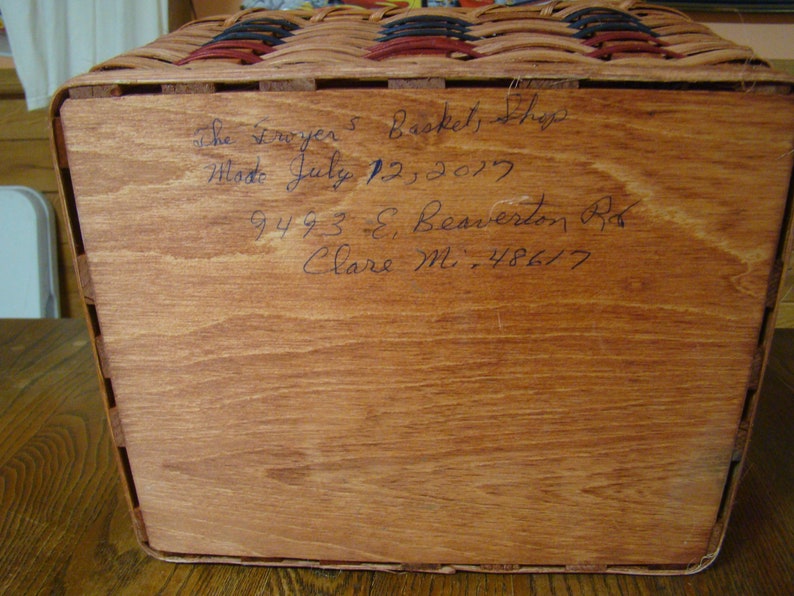 The Troyer's Basket Shop
Made July 12, 2017
9493 E. Beaverton Rd
Clare Mi. 48617